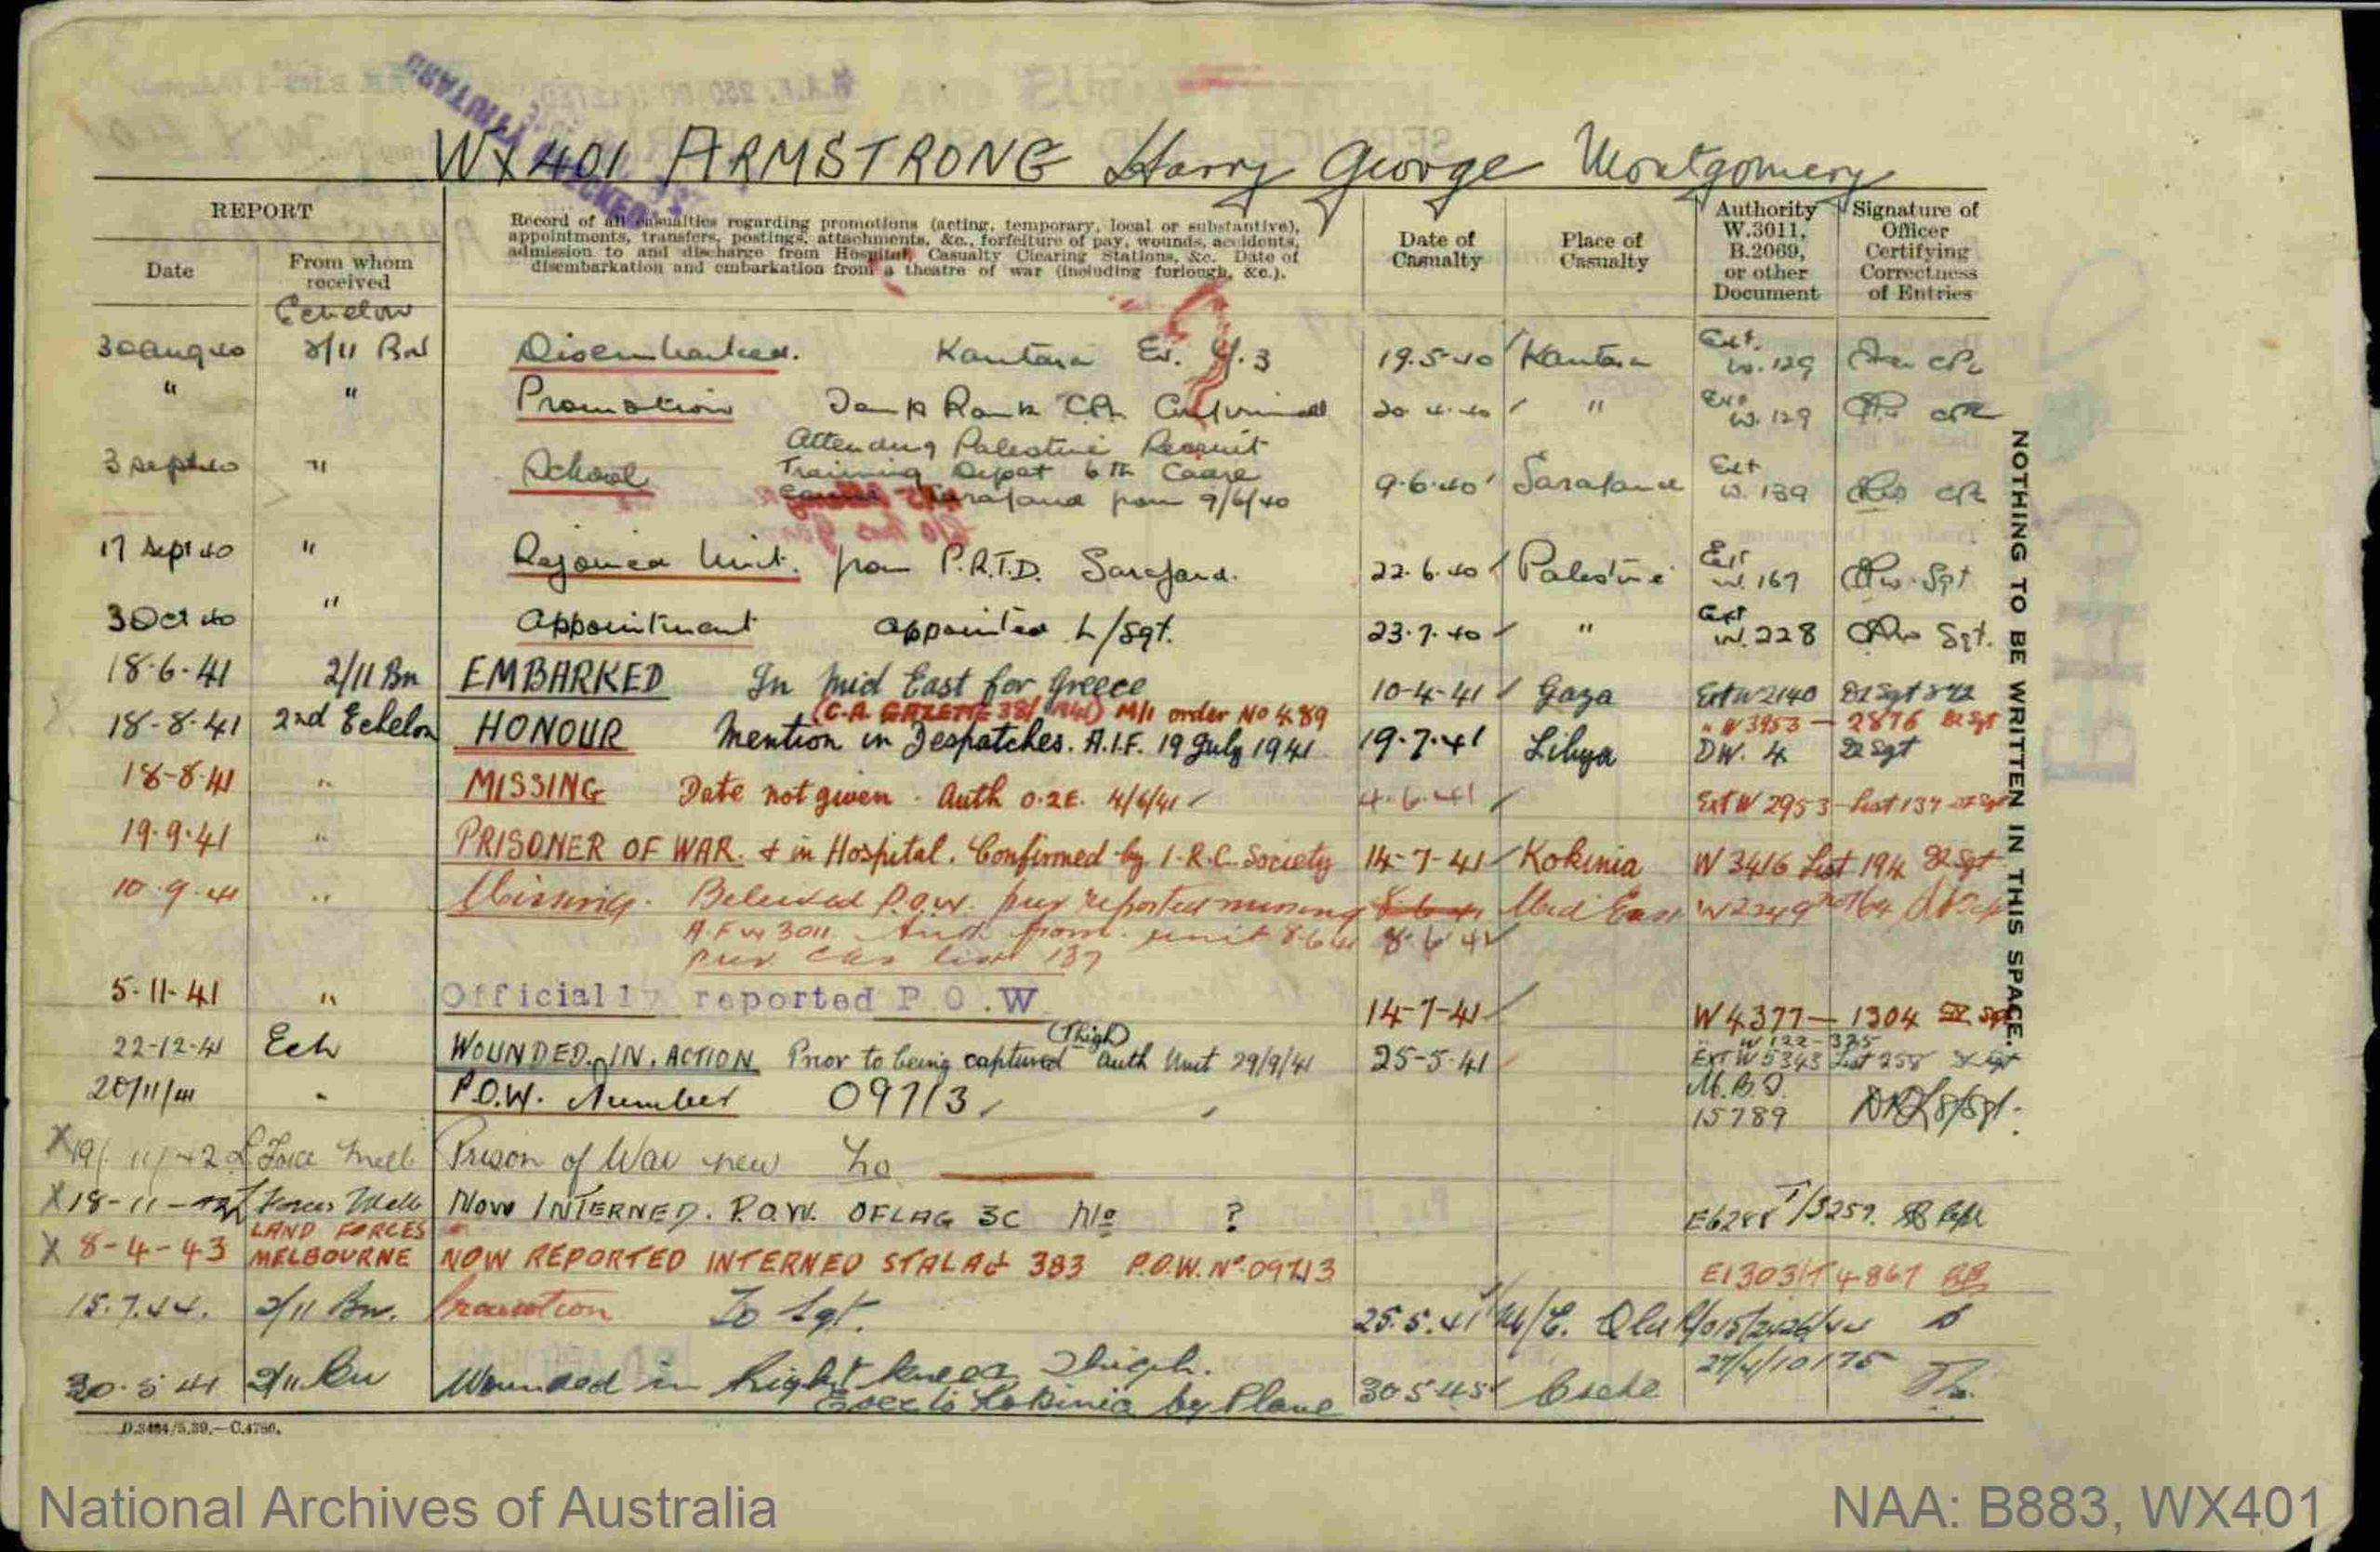 WX401 ARMSTRONG Harry George Montgomery
REPORT
Date
From whom received
Record of all casualties regarding promotions (acting, temporary, local or substantive),
appointments, transfers, postings, attachments, &c., forfeiture of pay, wounds, accidents,
admission to and discharge from Hospital, Casualty Clearing Stations, &c. Date of
disembarkation and embarkation from a theatre of war (including furlough, &c.).
Date of Casualty
Place of Casualty
Authority W.3011, B.2069, or other Document
Signature of Officer Certifying Correctness of Entries
Echelon
30 Aug 40 2/11 Bn Disembarked. Kantara 19.5.40 Kantara W.129 CPL
" " Promotion Rank CPL Confirmed 20.4.40 " W.129
Attending Palestine Recruit
3 Sept 40 " School Training Depot 6th 9.6.40 Sarafand W.139 CPL
Sarafand from 9/6/40
17 Sept 40 " Rejoined Unit. from P.R.T.D. Sarafand. 22.6.40 Palestine W.167 Sgt
3 Oct 40 " Appointment appointed L/Sgt. 23.7.40 " W.228 Sgt.
18.6.41 2/11 Bn EMBARKED In Mid East for Greece 10-4-41 Gaza Ext W2140
(C.A. GAZETTE 381/1941) M/I order No 489 " W3953 - 2876
18-8-41 2nd Echelon HONOUR Mention in Despatches. A.I.F. 19 July 1941 19.7.41 Libya DW. 4 Sgt
18-8-41 " MISSING Date not given. Auth O.2E. 4/6/41 4.6.41 Ext W 2953 List 137
19.9.41 " PRISONER OF WAR. + in Hospital. Confirmed by I.R.C. Society 14-7-41 Kokinia W 3416 List 194 Sgt
10.9.41 " Missing. Believed P.O.W. prev reported missing 8.6.41 Mid East W2249
A.F.W 3011. Auth from unit 8.6.41 8.6.41
prev. Cas list 137
5-11-41 " Officially reported P.O.W 14-7-41 W 4377 - 1304
W 122-325
22-12-41 Ech WOUNDED. IN. ACTION Prior to being captured (Thigh) Auth Unit 29/9/41 25-5-41 EXT W 5343 List 258
20/11/41 " P.O.W. Number 09713 M.B.D. 15789
X19/11/42 L Force Melb Prison of War new No
X18-11-42 L Forces Melb NOW INTERNED. P.O.W. OFLAG 3C No ? T/3257.
X 8-4-43 LAND FORCES MELBOURNE NOW REPORTED INTERNED STALAG 383 P.O.W. No. 09713 E1303/T4867
15.7.44. 2/11 Bn. Promotion To Sgt. 25.5.41 M/E.
2/11 Bn Wounded in Right knee & Thigh. 30545 Crete 27/4/10175
Evac to Kokinia by Plane
NOTHING TO BE WRITTEN IN THIS SPACE.
D.3484/5.39.—C.4786.
National Archives of Australia
NAA: B883, WX401